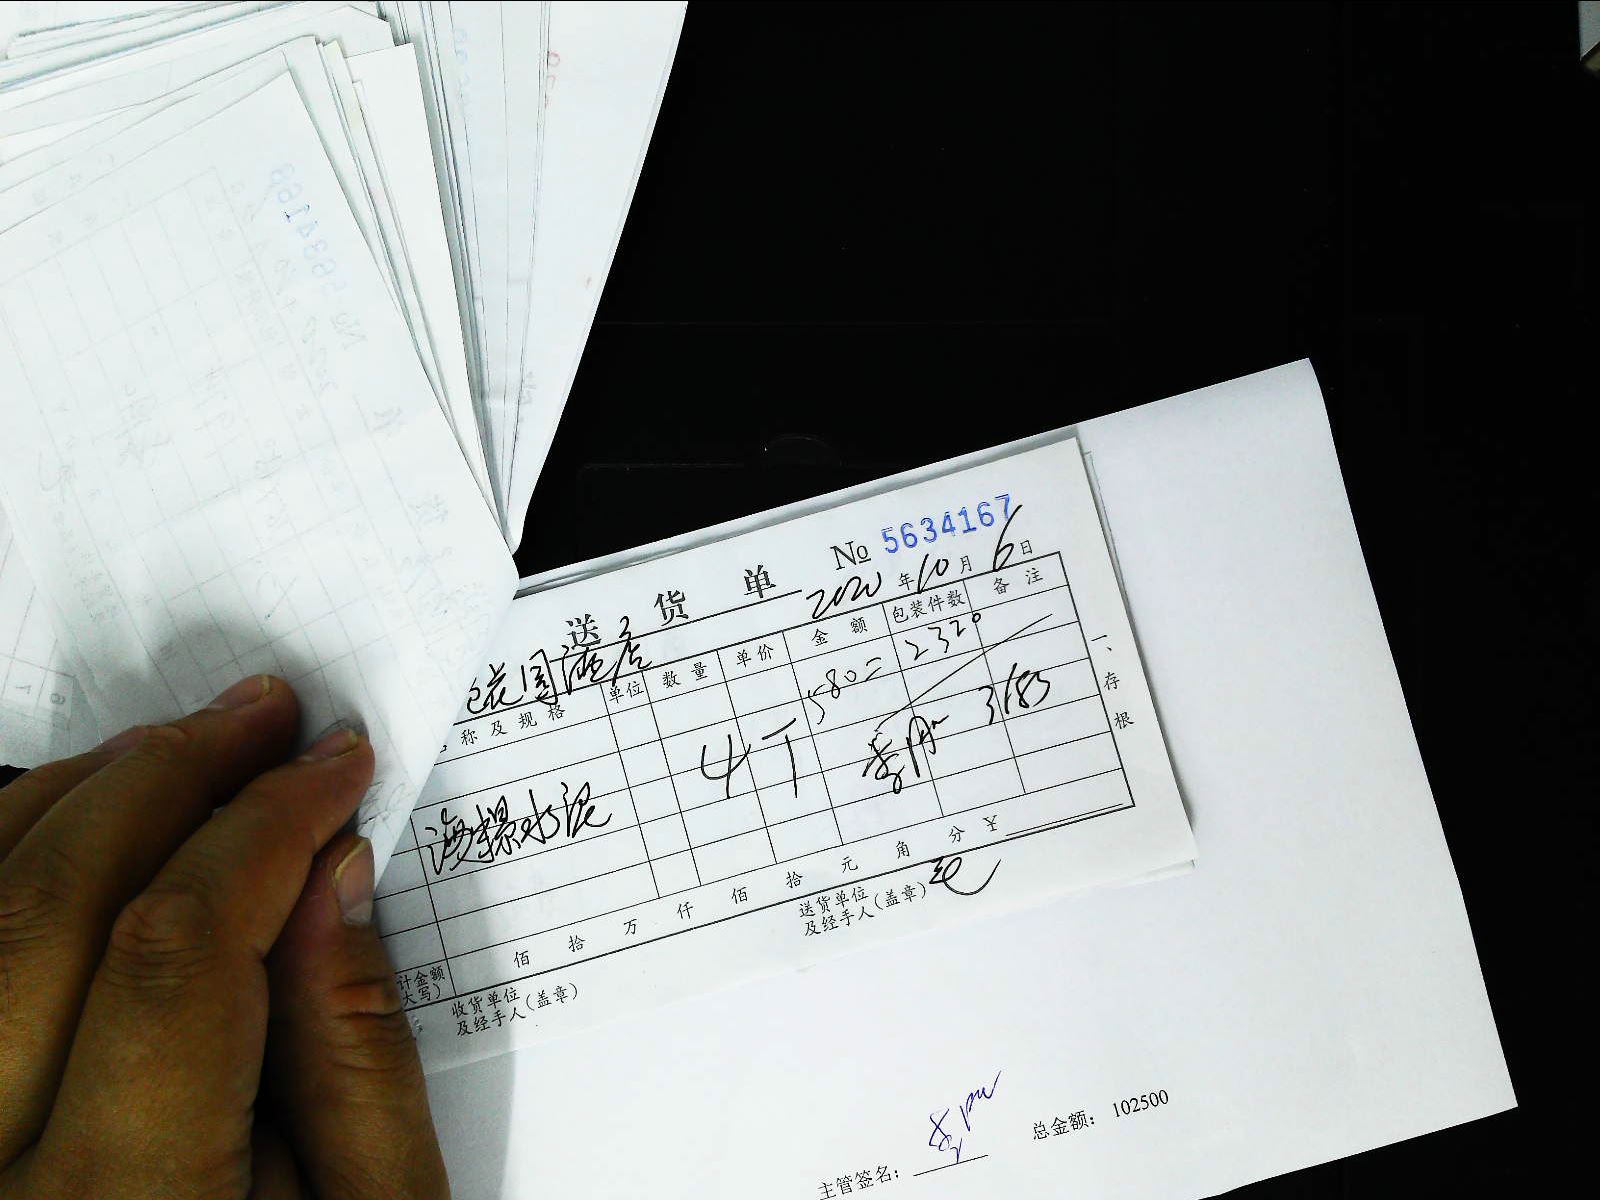 送货单 № 5634167
2020年10月6日
花园酒店
称及规格 单位 数量 单价 金额 包装件数 备注
580= 2320
4T 3183
海螺水泥
一、存根
计金额
大写)
佰 拾 万 仟 佰 拾 元 角 分 ¥
收货单位
及经手人(盖章)
送货单位
及经手人(盖章)
主管签名: 总金额: 102500